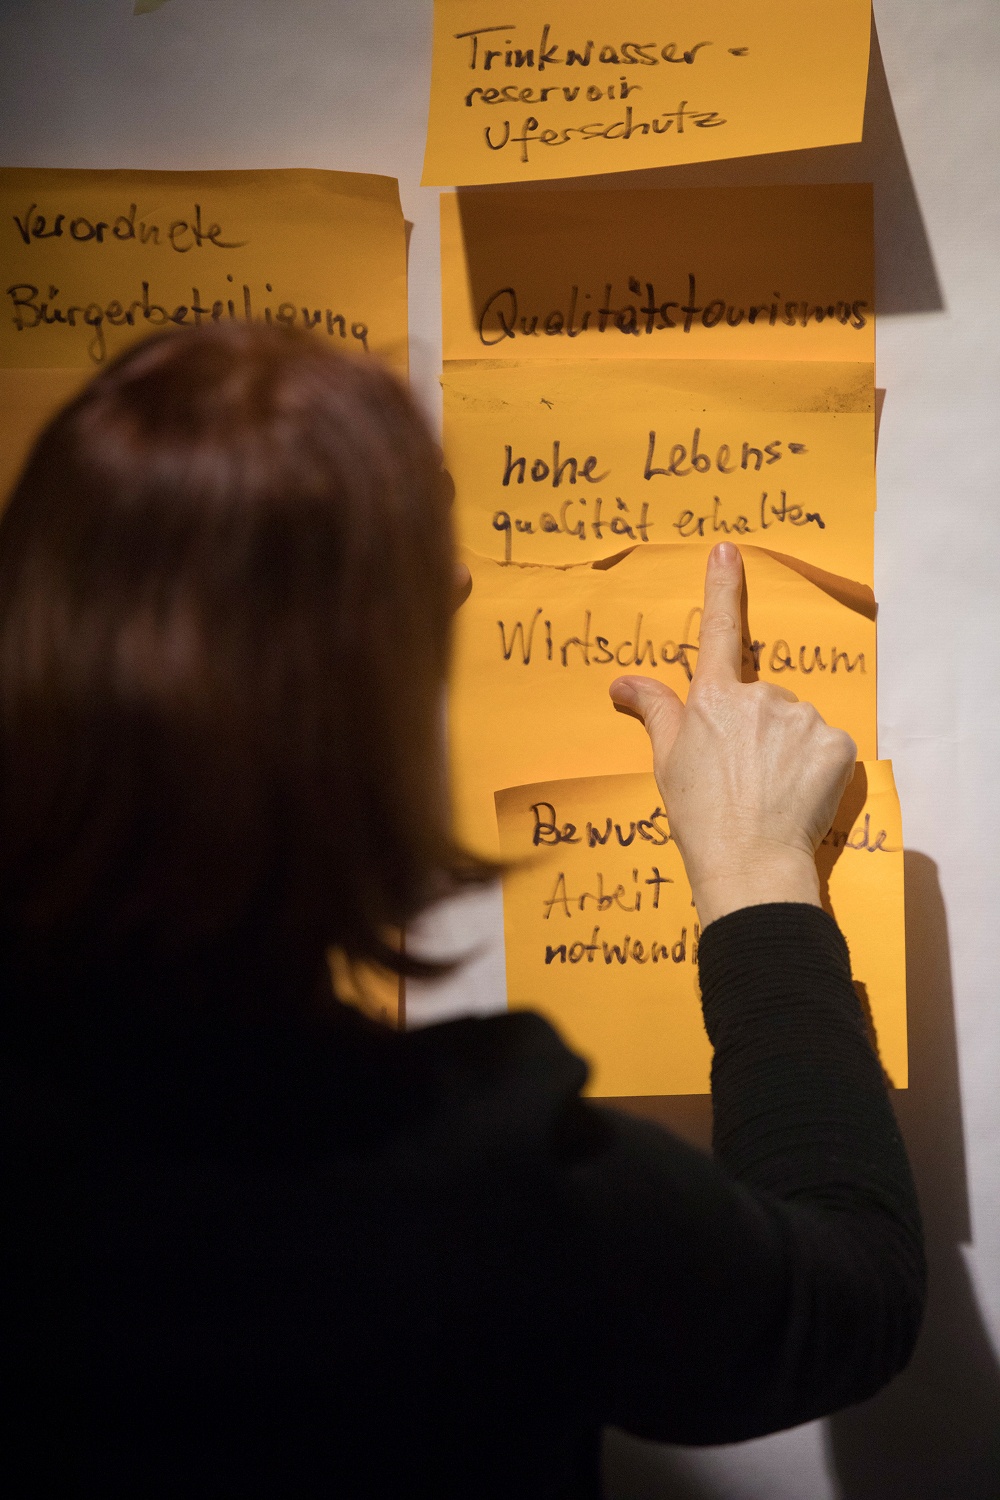 Trinkwasser=
reservoir
Uferschutz
verordnete
Bürgerbeteiligung
Qualitätstourismus
hohe Lebens=
qualität erhalten
Wirtschaftsraum
Arbeit